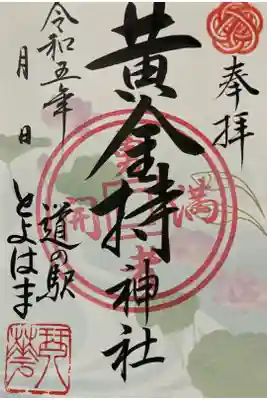 奉拝
黄金持神社
令和五年
月 日
道の駅
とよはま
開
満